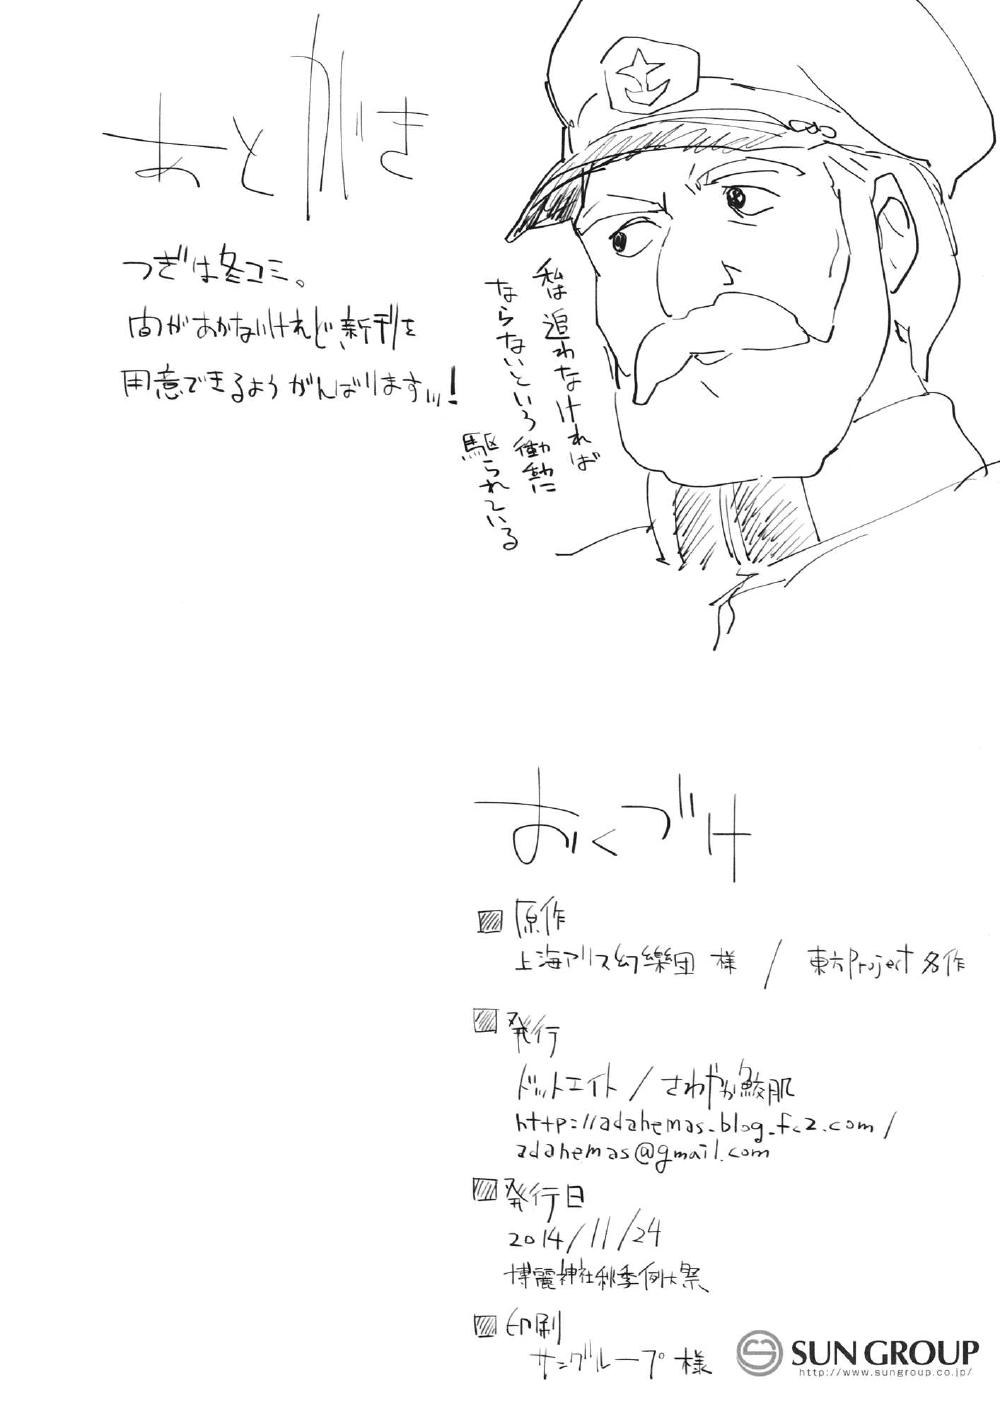 あとがき
つぎは冬コミ。
間があかないけれど、新刊を
用意できるようがんばりますッ!
私は追わなければ
ならないという衝動に
駆られている
おくづけ
原作
上海アリス幻樂団 様 / 東方Project各作
発行
ドットエイト / さわやか鮫肌
http://adahemas.blog.fc2.com/
adahemas@gmail.com
発行日
2014/11/24
博麗神社秋季例大祭
印刷
サングループ 様
SUN GROUP
http://www.sungroup.co.jp/